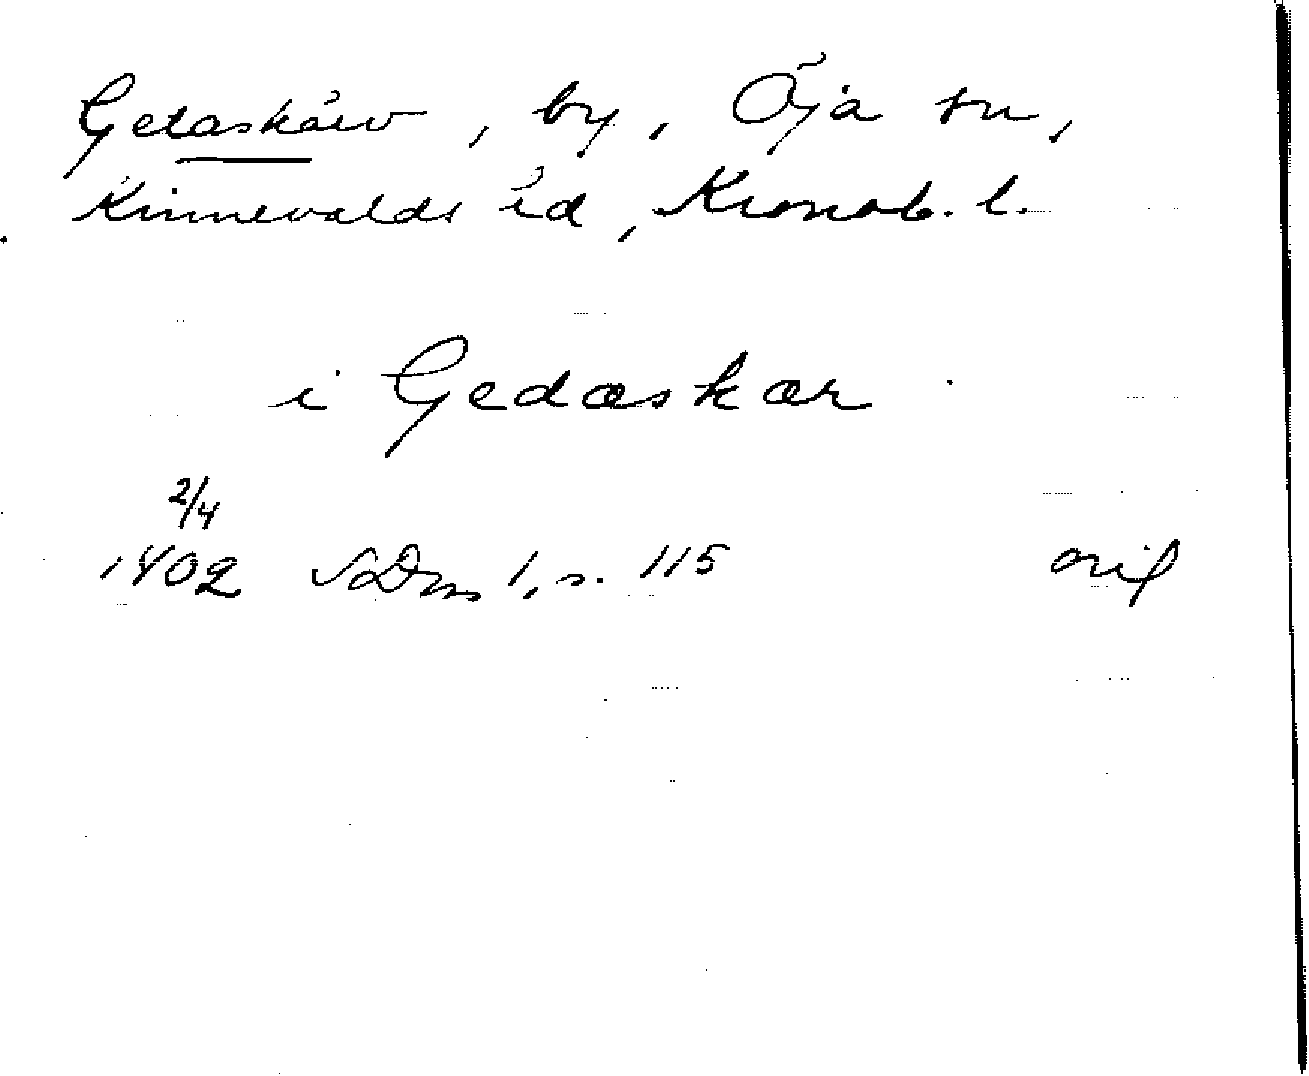 Getaskärv, by, Öja sn,
Kinnevalds hd, Kronob. l.
i Gedæskær
2/4
1402 SDns 1, s. 115 orig